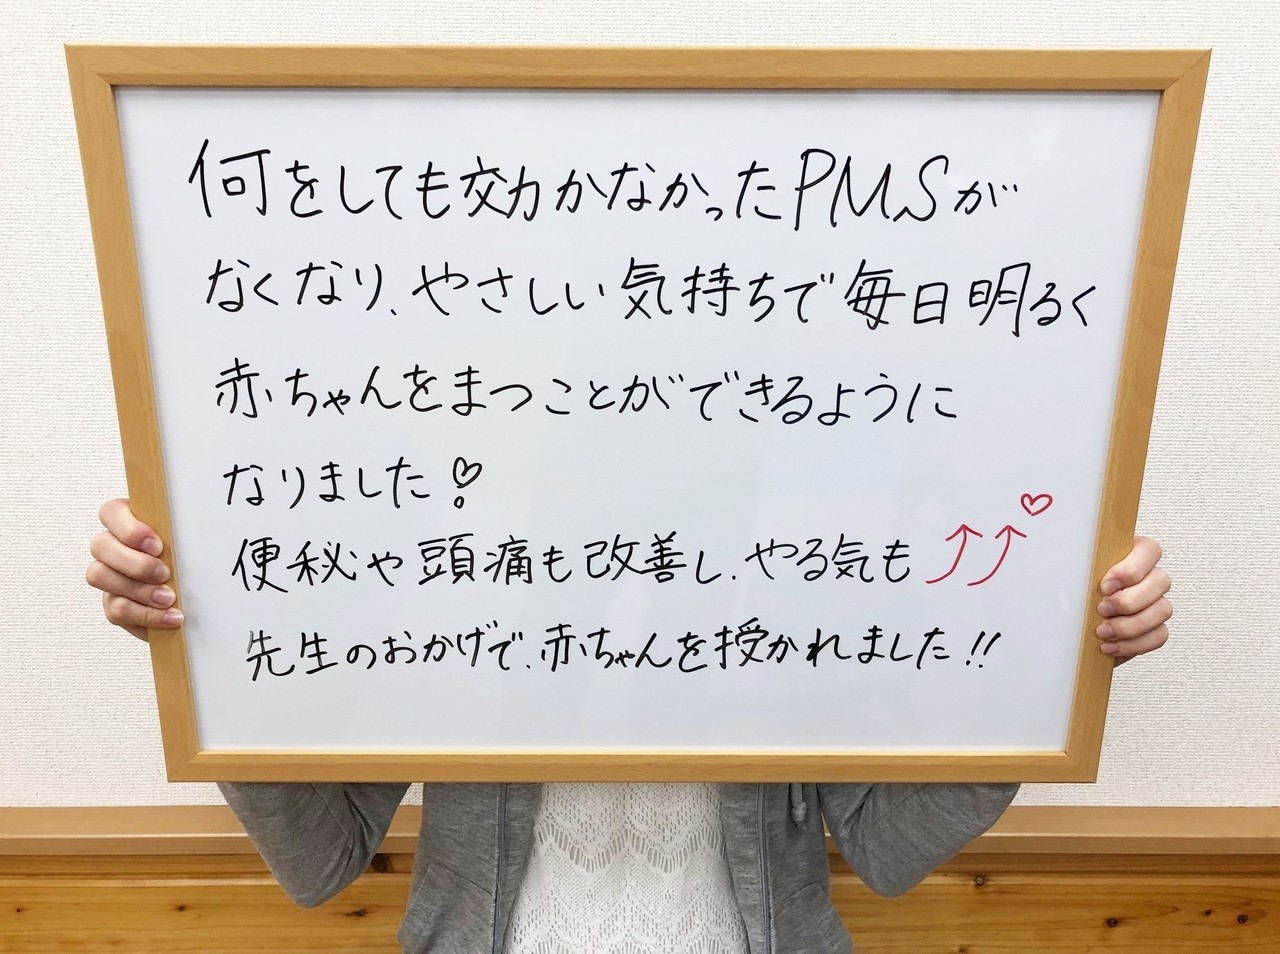 何をしても効かなかったPMSが
なくなり、やさしい気持ちで毎日明るく
赤ちゃんをまつことができるように
なりました♡
便秘や頭痛も改善し、やる気も⤴⤴♡
先生のおかげで、赤ちゃんを授かれました!!